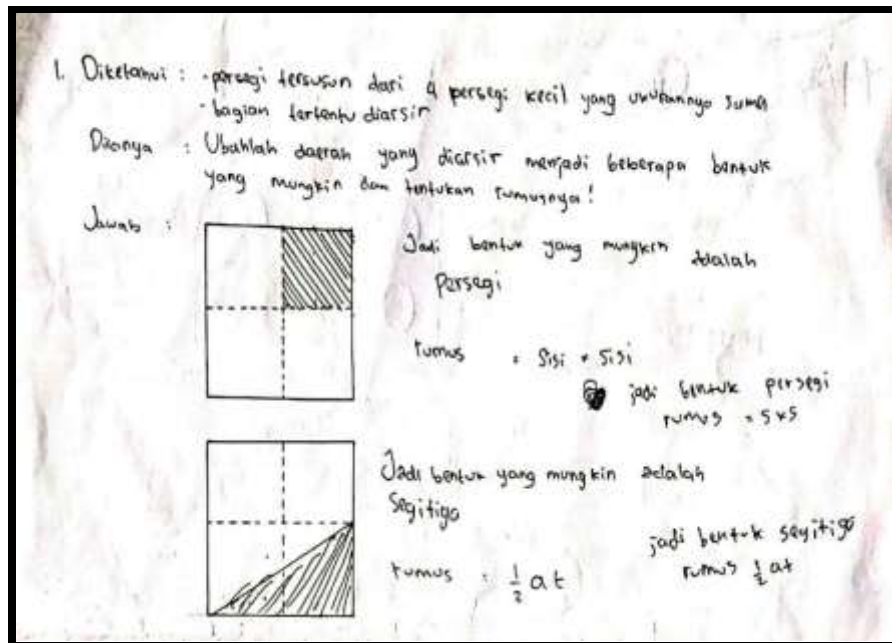 1. Diketahui : · persegi tersusun dari 4 persegi kecil yang ukurannya sama
· bagian tertentu diarsir
Ditanya : Ubahlah daerah yang diarsir menjadi beberapa bentuk
yang mungkin dan tentukan rumusnya!
Jawab :
Jadi bentuk yang mungkin adalah
Persegi
rumus = sisi × sisi
jadi bentuk persegi
rumus = s×s
Jadi bentuk yang mungkin adalah
Segitiga
rumus : 1/2 a t
jadi bentuk segitiga
rumus 1/2 at